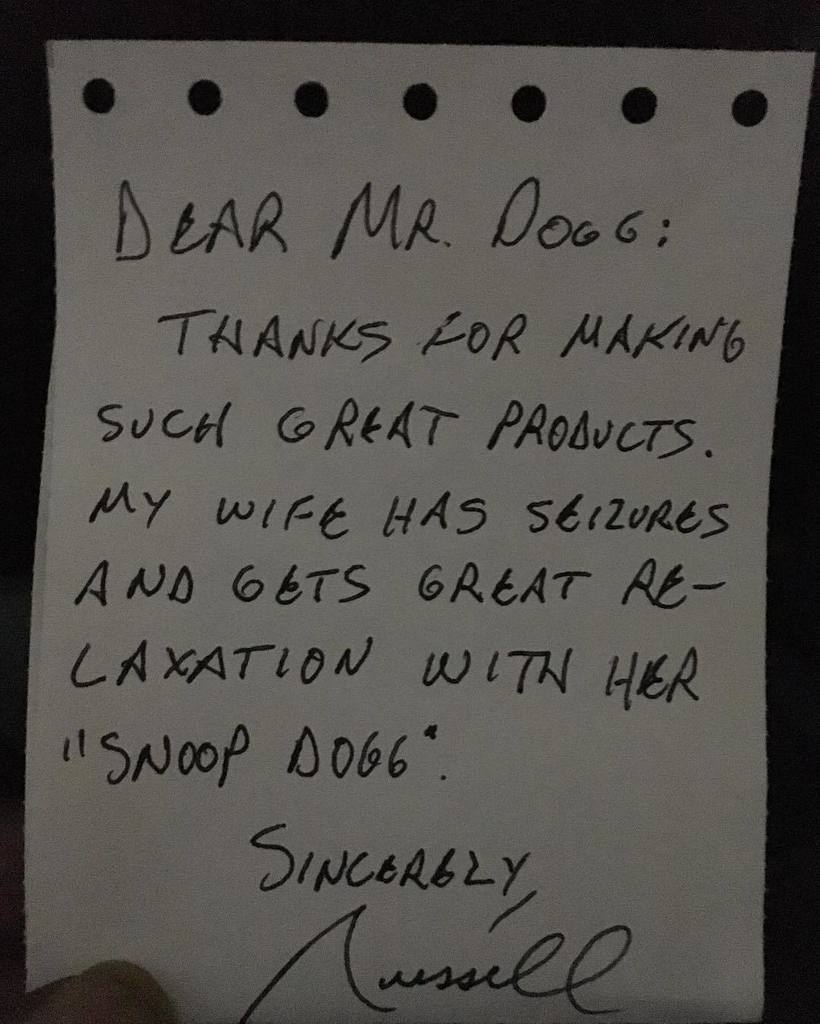 DEAR MR. DOGG:
THANKS FOR MAKING
SUCH GREAT PRODUCTS.
MY WIFE HAS SEIZURES
AND GETS GREAT RE-
LAXATION WITH HER
"SNOOP DOGG".
SINCERELY,
Russell